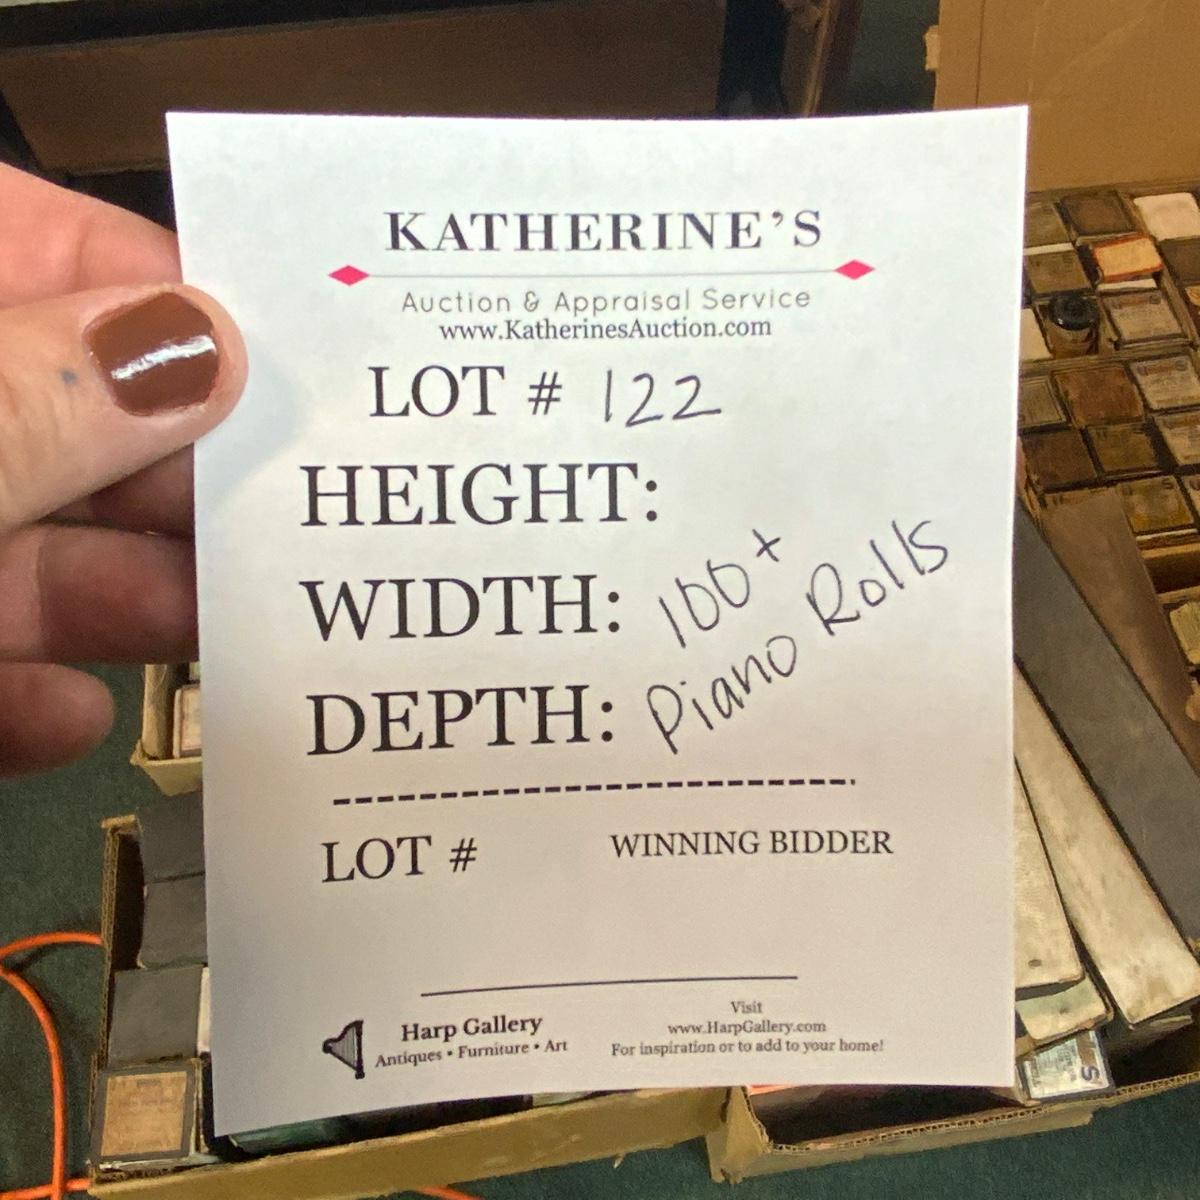 KATHERINE'S
Auction & Appraisal Service
www.KatherinesAuction.com
LOT # 122
HEIGHT:
WIDTH: 100+
DEPTH: Piano Rolls
LOT # WINNING BIDDER
Harp Gallery
Antiques • Furniture • Art
Visit
www.HarpGallery.com
For inspiration or to add to your home!